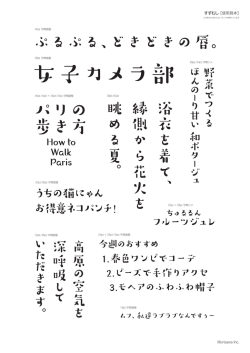 すずむし【使用見本】
ぷるぷる、どきどきの唇。
女子カメラ部
野菜でつくる
ほんのーり甘い和ポタージュ
パリの
歩き方
How to
Walk
Paris
眺める夏。
縁側から花火を
浴衣を着て、
うちの猫にゃん
お得意ネコパンチ!
ちゅるるん
フルーツジュレ
高原の空気を
深呼吸して
いただきます。
今週のおすすめ
1.春色ワンピでコーデ
2.ビーズで手作りアクセ
3.モヘアのふわふわ帽子
ムフ、私達ラブラブなんですぅ〜